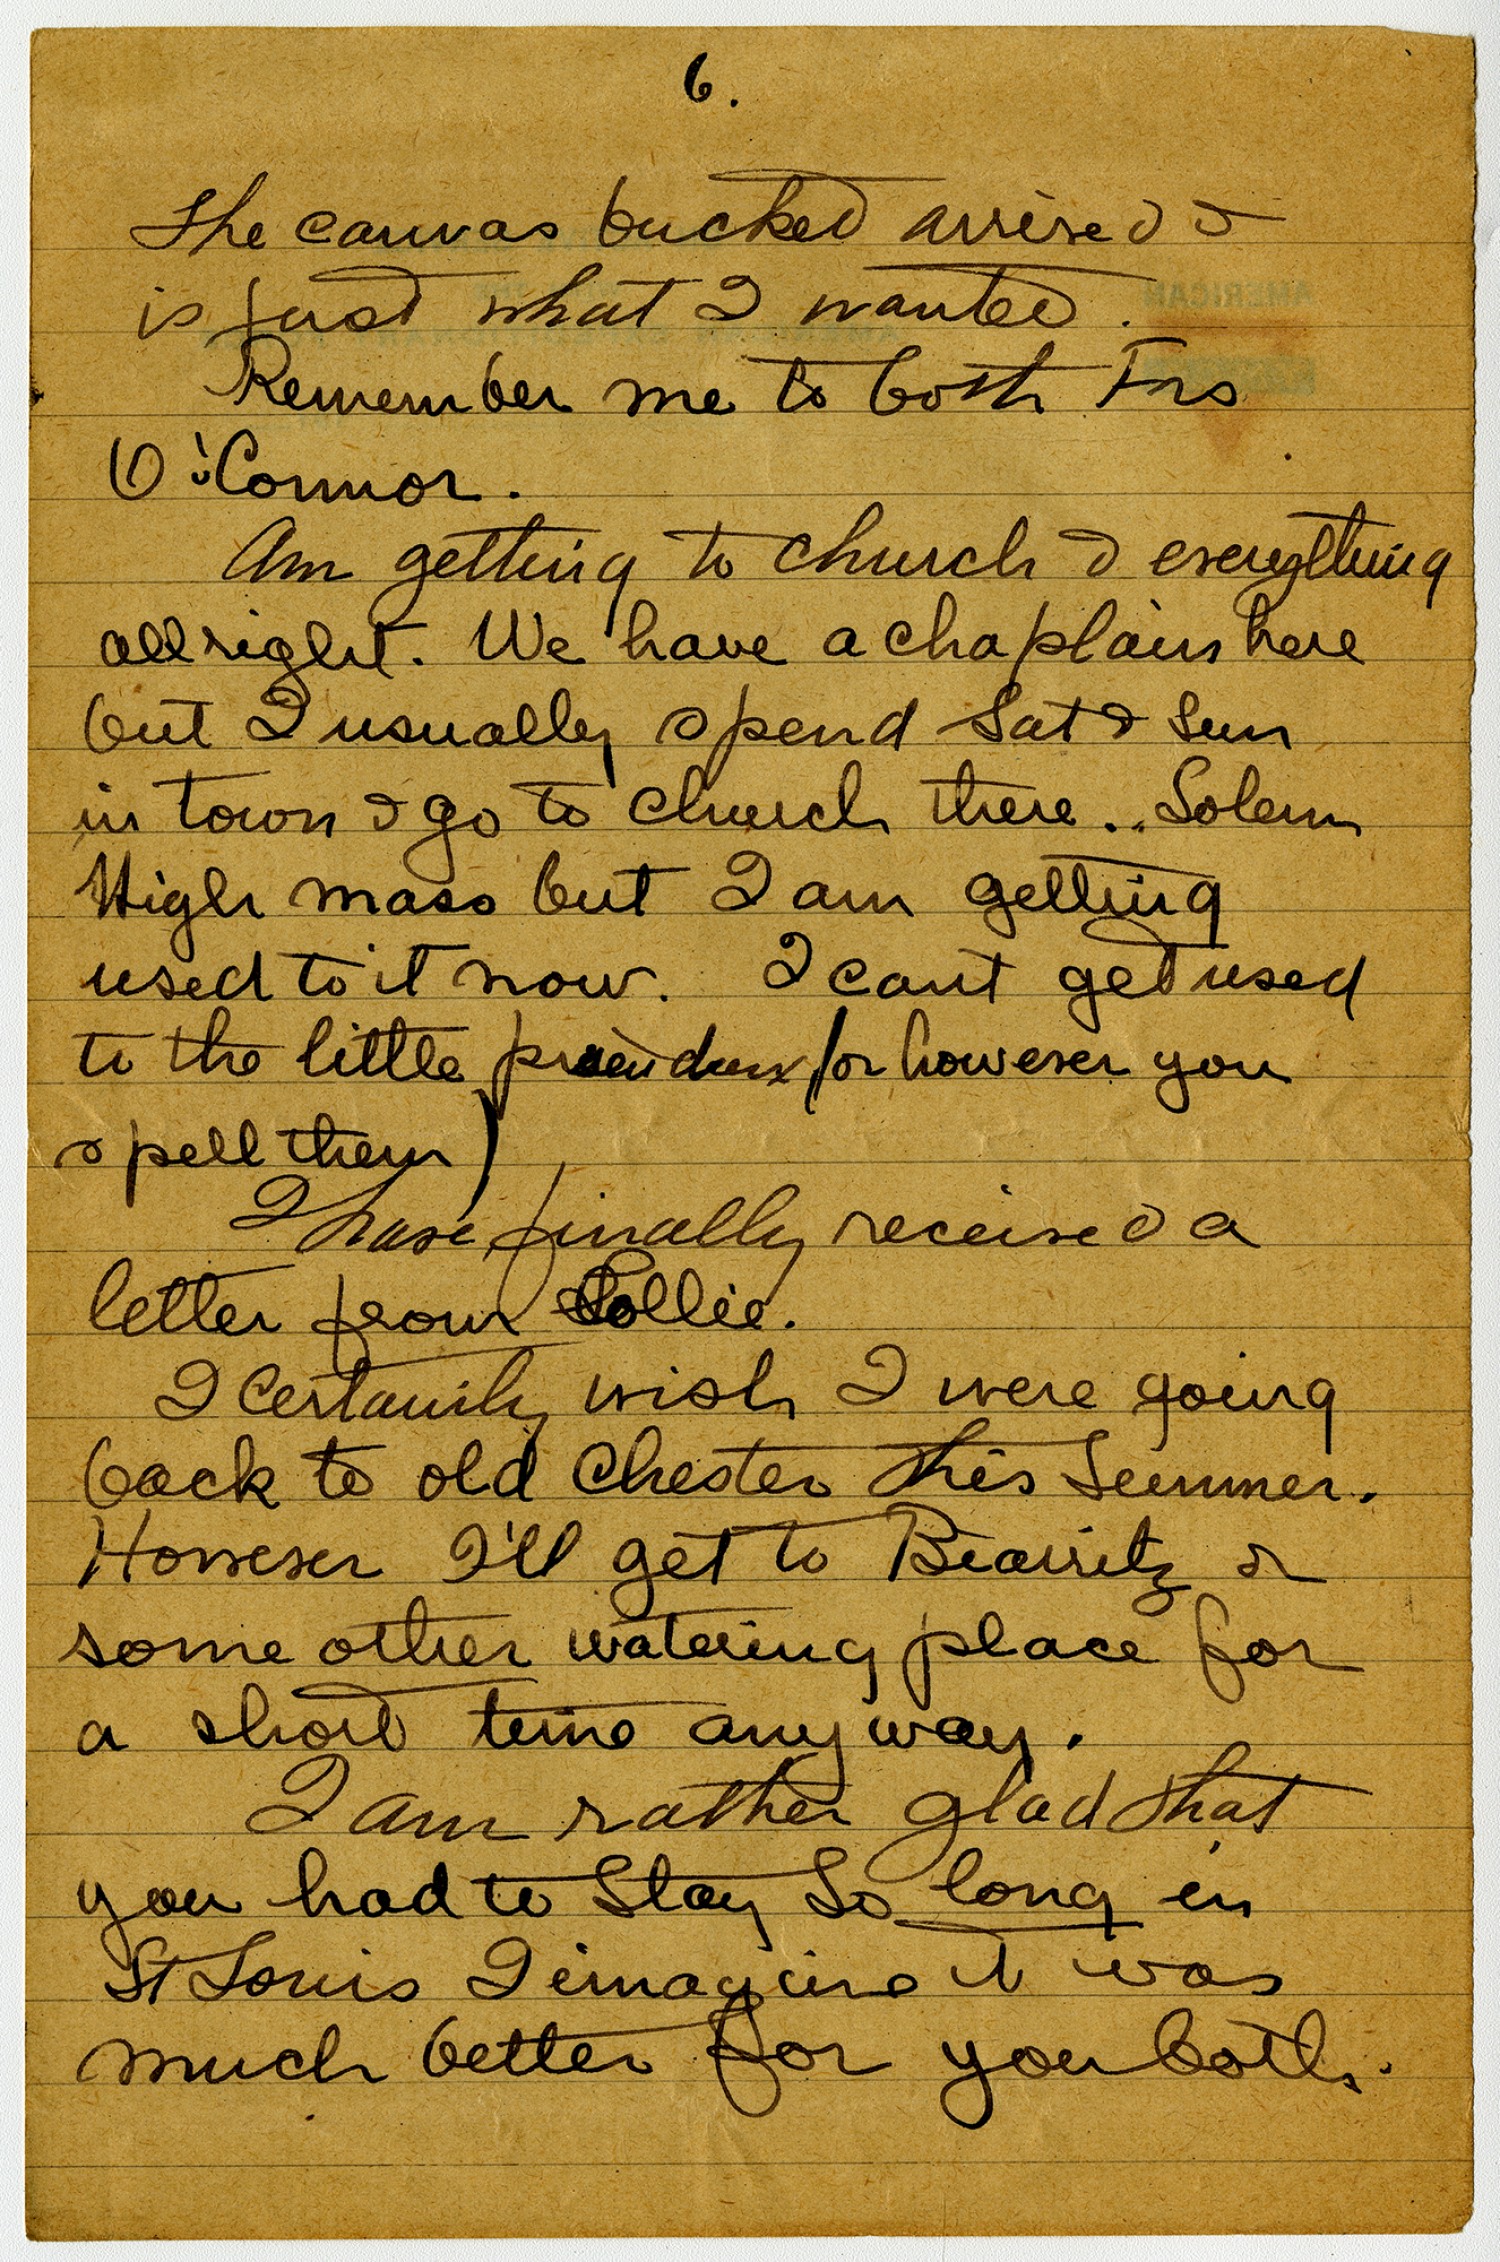 6.
The canvas bucket arrived &
is just what I wanted.
Remember me to both Frs
O'Connor.
Am getting to church & everything
all right. We have a chaplain here
but I usually spend Sat & Sun
in town & go to church there... Solem
High mass but I am getting
used to it now. I cant get used
to the little (or however you
spell them)
I have finally received a
letter from Pollie.
I certainly wish I were going
back to old Chester this summer.
However I'll get to Biarritz or
some other watering place for
a short time anyway.
I am rather glad that
you had to stay so long in
St Louis I imagine it was
much better for you both.
AMERICAN